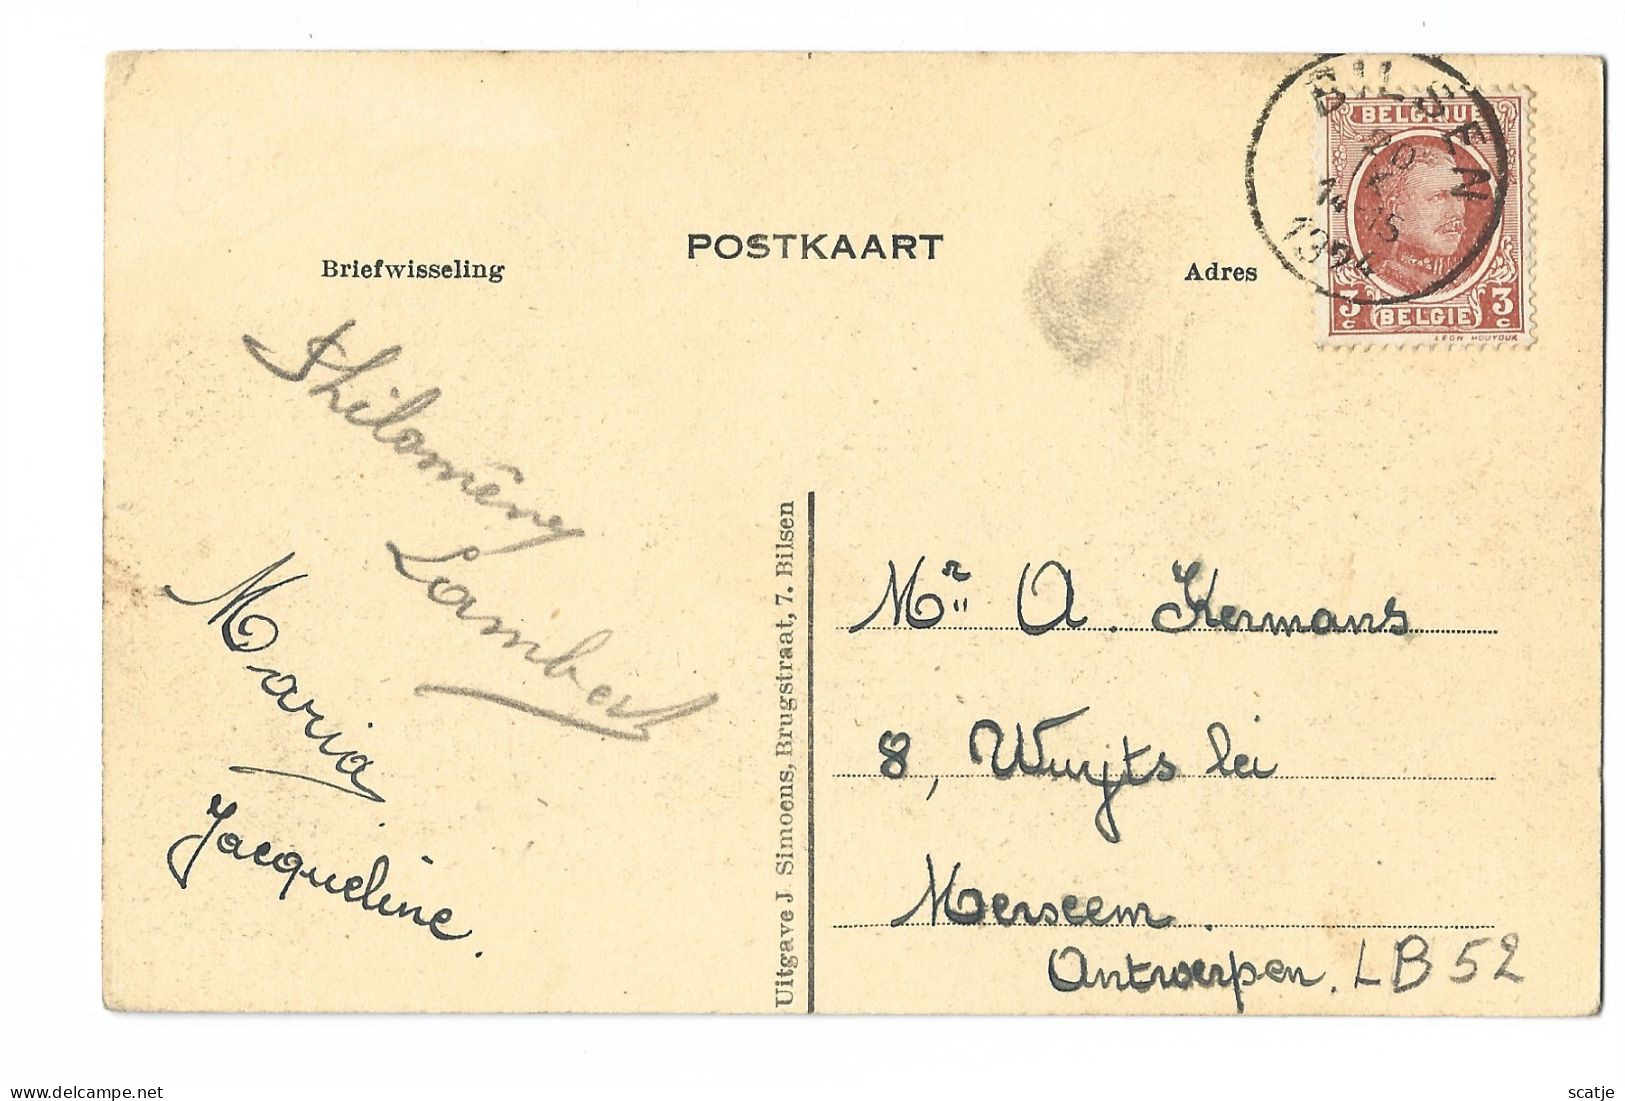 POSTKAART
Briefwisseling
Adres
BILSEN
20
14-15
1924
BELGIQUE
3 c
BELGIE
3 c
LEON HOUYOUX
Philomène
Lambert
Maria
Jacqueline.
Uitgave J Simoens, Brugstraat, 7. Bilsen
Mr A. Kermans
8, Wuyts lei
Merseem.
Antwerpen.
LB 52
scatje